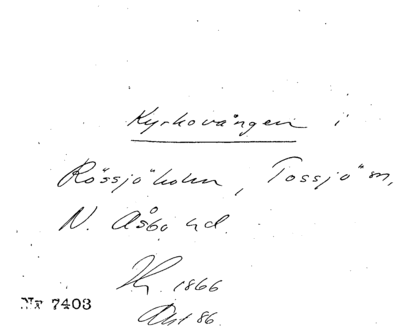 Kyrkovången i
Rössjöholm, Tossjö sn,
N. Åsbo hd.
1866
86.
Nr 7403